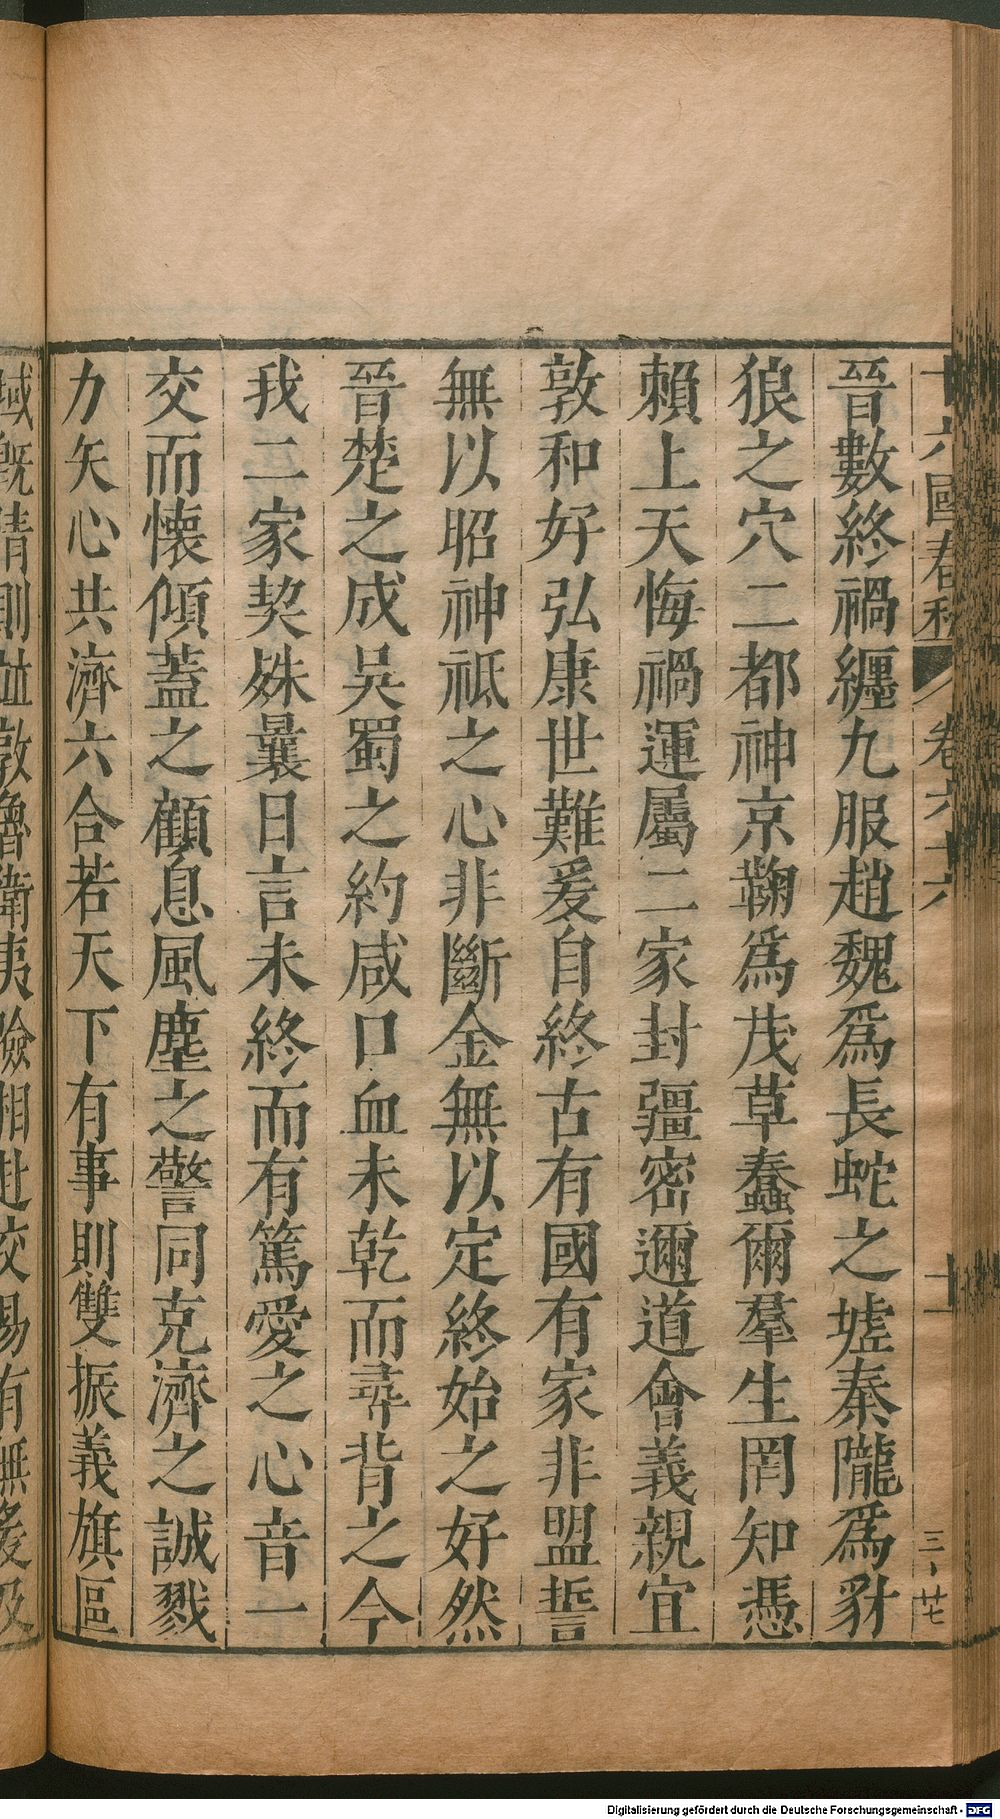 十六國春秋 卷六十六 十一 三、廿七
晉數終禍纏九服趙魏爲長蛇之墟秦隴爲豺
狼之穴二都神京鞠爲茂草蠢爾羣生罔知憑
賴上天悔禍運屬二家封疆密邇道會義親宜
敦和好弘康世難爰自終古有國有家非盟誓
無以昭神祗之心非斷金無以定終始之好然
晉楚之成吳蜀之約咸口血未乾而尋背之今
我二家契殊曩日言未終而有篤愛之心音一
交而懷傾蓋之顧息風塵之警同克濟之誠戮
力矢心共濟六合若天下有事則雙振義旗區
域旣清則並敦魯衛夷險相赴交易有無爰及
Digitalisierung gefördert durch die Deutsche Forschungsgemeinschaft - DFG